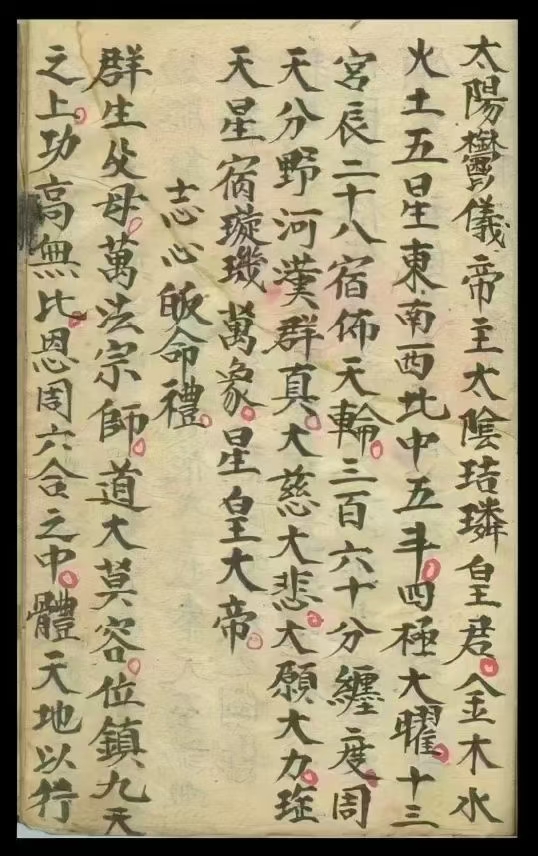 太陽鬱儀帝主太陰珪璘皇君。金木水
火土五星東南西北中五斗。四極大曜。十三
宮辰二十八宿佈天輪。三百六十分纏度。周
天分野河漢群真。大慈大悲。大願大力。琁
天星宿璇璣萬象。星皇大帝。
志心皈命禮。
群生父母。萬法宗師。道大莫容。位鎮九天
之上。功高無比。恩周六合之中。體天地以行